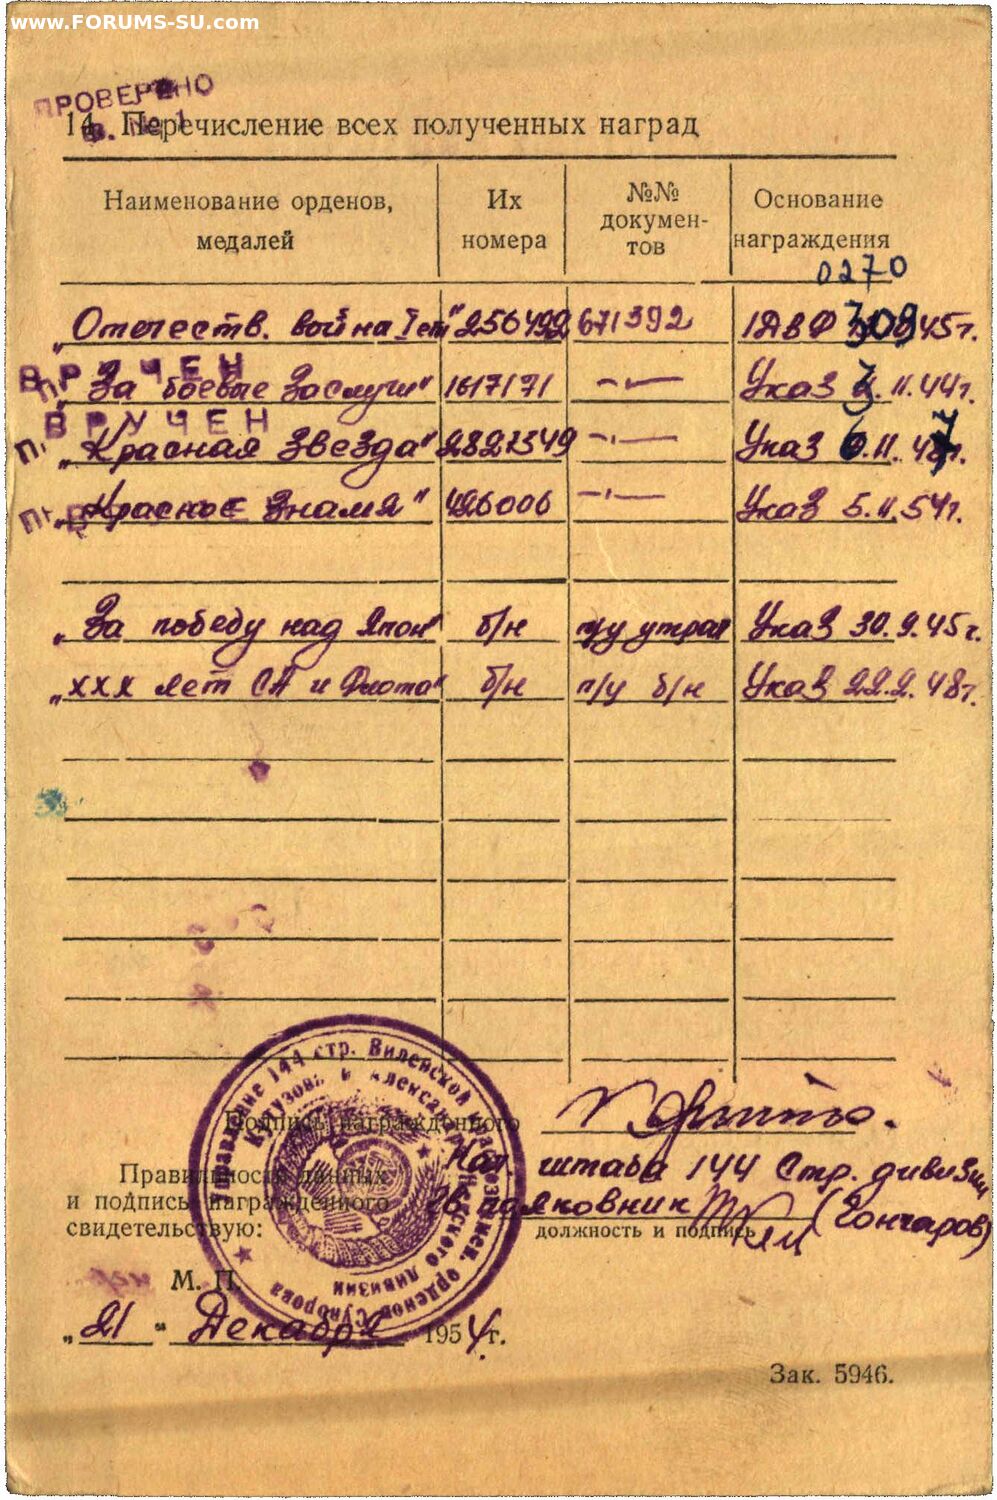 www.FORUMS-SU.com
ПРОВЕРЕНО
14. Перечисление всех полученных наград
Наименование орденов, медалей
Их номера
№№ документов
Основание награждения
0270
„Отечеств. война I ст" 256492 671392 1 ДВФ 309 45г.
ВРУЧЕН
„За боевые заслуги" 1617171 —"— Указ 3.11.44г.
ВРУЧЕН
„Красная Звезда" 2827349 —"— Указ 6.11.47г.
„Красное Знамя" 496006 —"— Указ 5.11.54г.
„За победу над Япон" б/н п/у утрач Указ 30.9.45г.
„XXX лет СА и Флота" б/н п/у б/н Указ 22.2.48г.
Подпись награжденного
Правильность данных
и подпись награжденного
свидетельствую:
Нач. штаба 144 Стр. дивизии
Гв полковник (Гончаров)
должность и подпись
М. П.
„21" Декабря 1954 г.
Управление 144 стр. Виленской Краснознамен. орденов Суворова
Кутузова и Александра Невского дивизии
Зак. 5946.